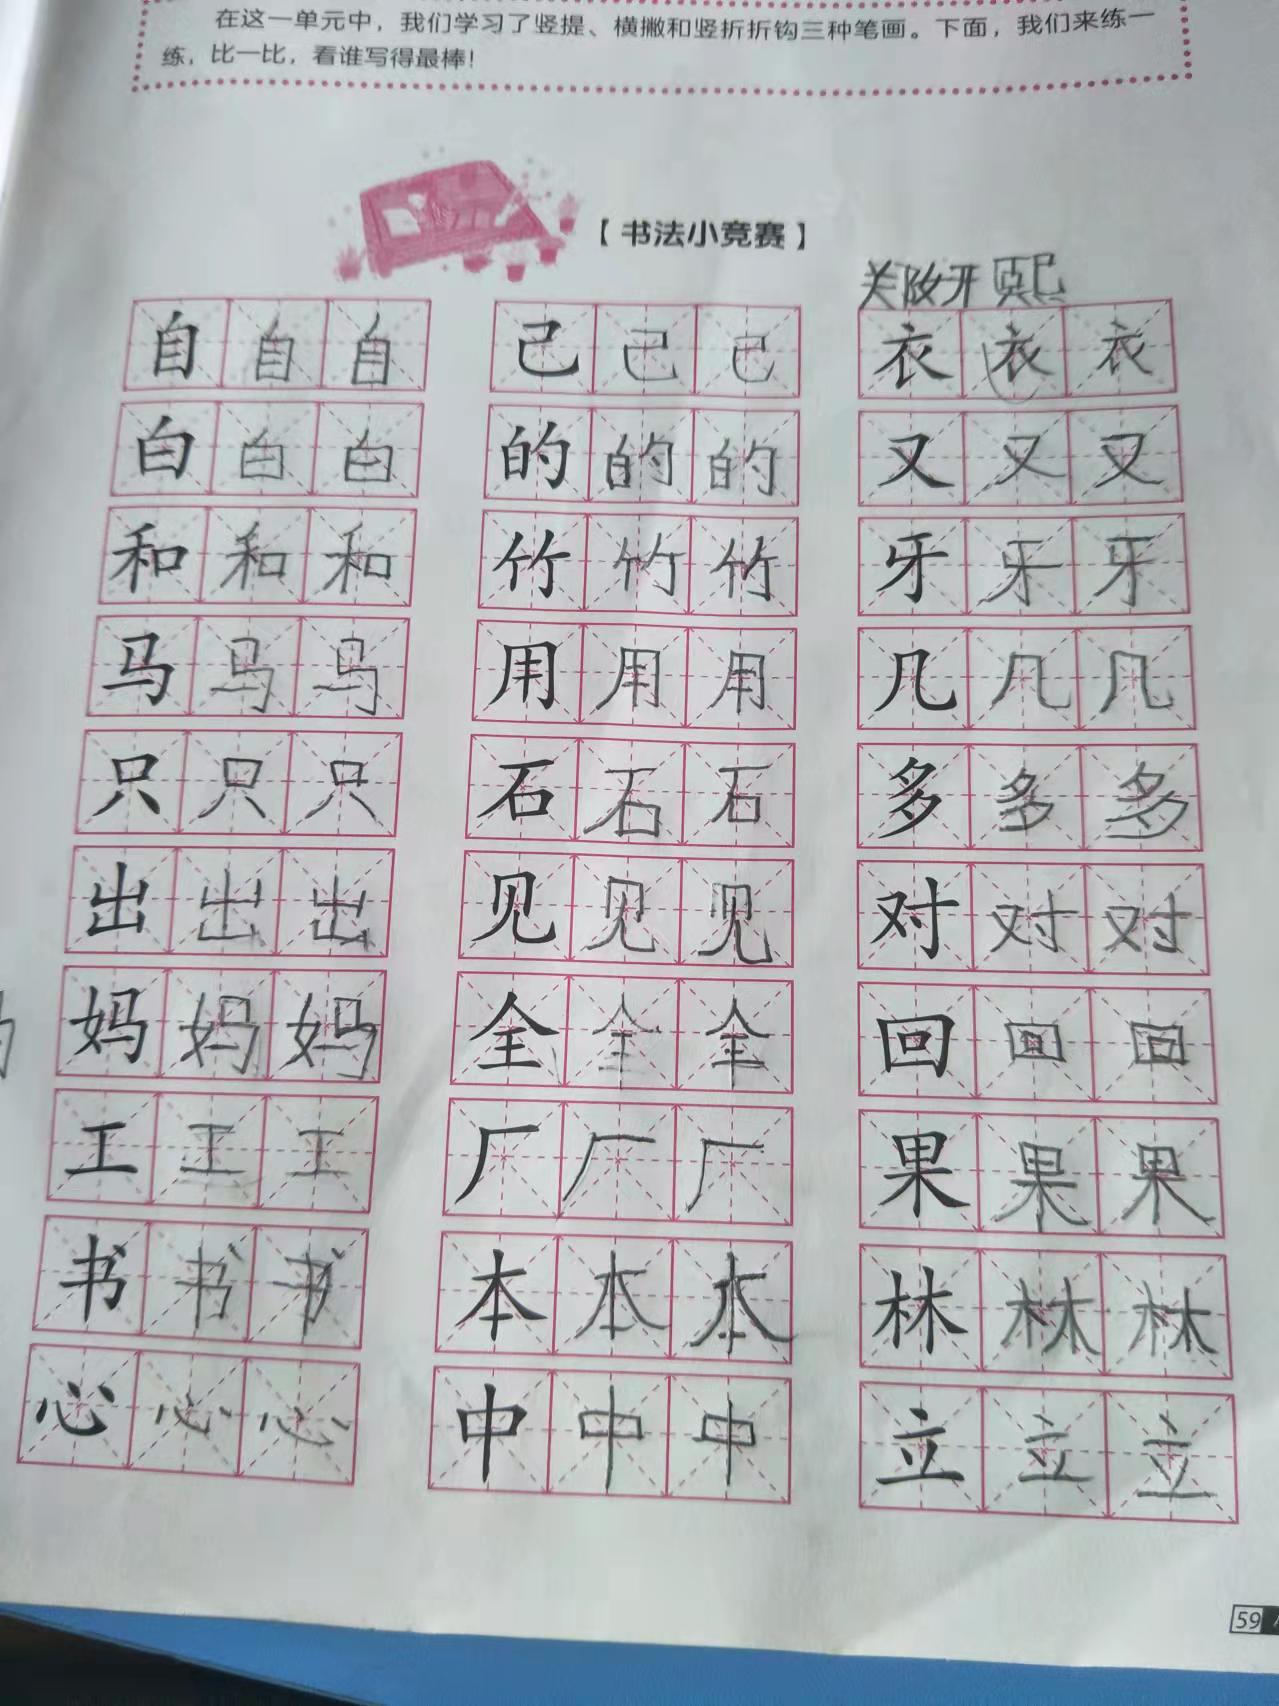 在这一单元中，我们学习了竖提、横撇和竖折折钩三种笔画。下面，我们来练一
练，比一比，看谁写得最棒！
【书法小竞赛】
郑妤熙
自自自 己己己 衣衣衣
白白白 的的的 又又又
和和和 竹竹竹 牙牙牙
马马马 用用用 几几几
只只只 石石石 多多多
出出出 见见见 对对对
妈妈妈 全全全 回回回
工工工 厂厂厂 果果果
书书书 本本本 林林林
心心心 中中中 立立立
59